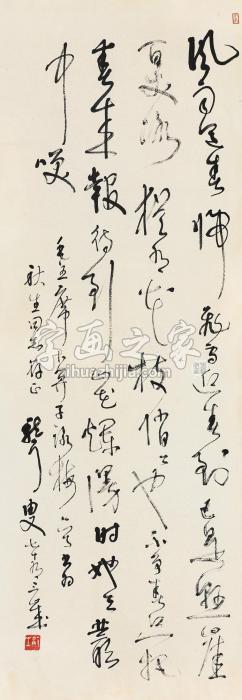 风雨送春归飞雪迎春到已是悬崖
百丈冰犹有花枝俏俏也不争春只把
春来报待到山花烂漫时她在丛
中笑
毛主席卜算子咏梅
秋生同志存正
字画之家
zihuazhijia.com